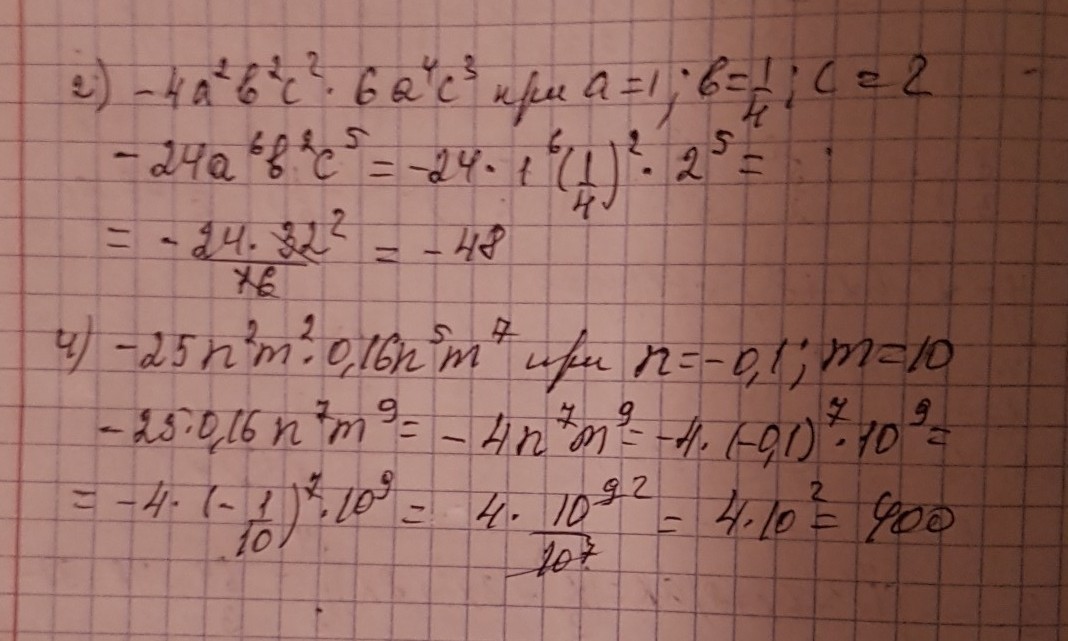 2) -4a²b²c² · 6a⁴c³ при a = 1; b = 1/4; c = 2
-24a⁶b²c⁵ = -24 · 1⁶(1/4)² · 2⁵ =
= - 24 · 32²/16 = -48
4) -25n²m² · 0,16n⁵m⁷ при n = -0,1; m = 10
-25 · 0,16n⁷m⁹ = -4n⁷m⁹ = -4 · (-0,1)⁷ · 10⁹ =
= -4 · (-1/10)⁷ · 10⁹ = 4 · 10⁹ ²/10⁷ = 4 · 10² = 400